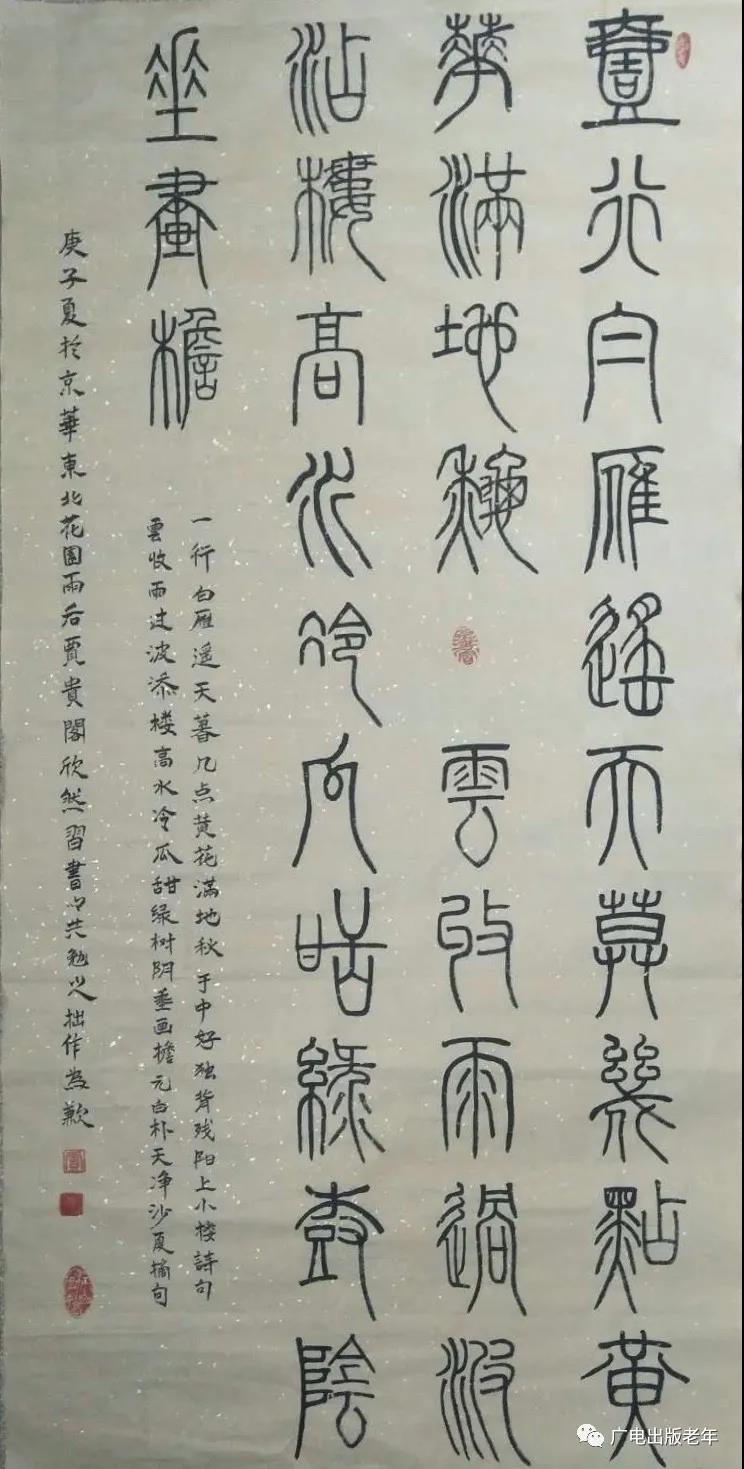 壹行白雁遙天莫幾點黃
華滿地秋 雲收雨過波
沾樓高水冷瓜甛綠尌陰
垂畫檐
一行白雁遥天暮几点黄花满地秋于中好独背残阳上小楼詩句
雲收雨过波添楼高水冷瓜甜绿树阴垂画檐元白朴天净沙夏摘句
庚子夏於京華東北花園雨后賈貴閣欣然習書以共勉之拙作為歉
广电出版老年